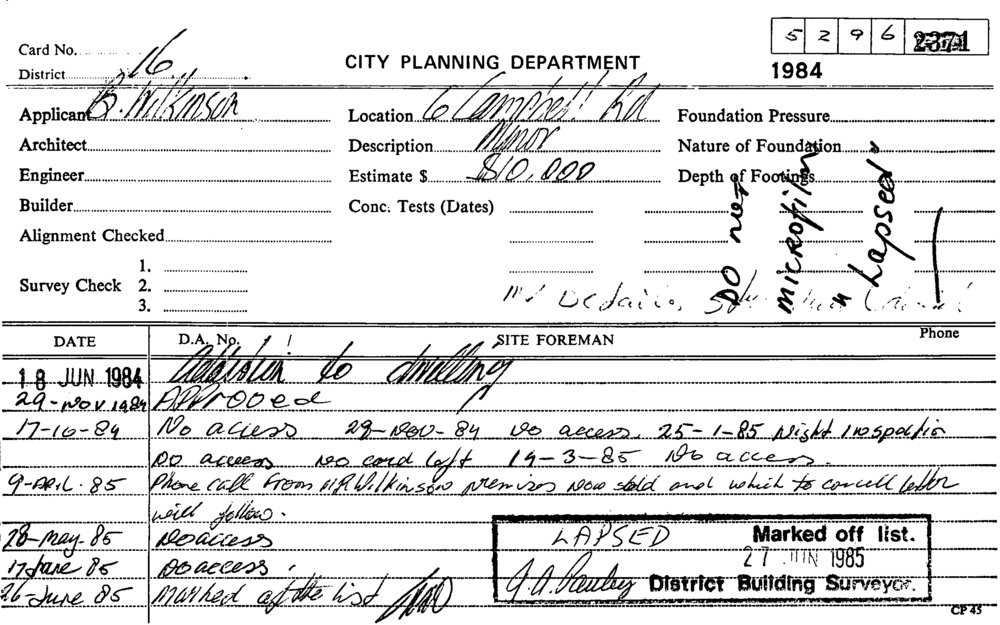 5 2 9 6 2371
Card No.
District 16
CITY PLANNING DEPARTMENT
1984
Applicant B. Wilkinson
Location 6 Campbell Rd
Foundation Pressure
Architect
Description Minor
Nature of Foundation
Engineer
Estimate $ $10,000
Depth of Footings
Builder
Conc. Tests (Dates)
Alignment Checked
DO NOT
MICROFILM
"Lapsed"
Survey Check
1.
2.
3.
Details
DATE
D.A. No.
SITE FOREMAN
Phone
18 JUN 1984 Addition to dwelling
29-NOV 1984 APProved
17-10-84 No access 29-Nov-84 No access. 25-1-85 Night Inspection
No access No card left 19-3-85 No access.
9-APRIL-85 Phone call from Mr Wilkinson premises now sold and which to cancell letter
will follow.
28-may-85 No access
17 June 85 No access.
26-June 85 marked off the list
LAPSED
Marked off list.
27 JUN 1985
District Building Surveyor.
CP 45